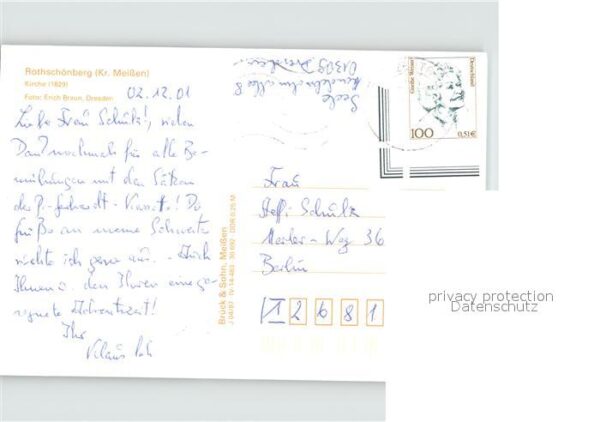 Rothschönberg (Kr. Meißen)
Kirche (1829)
Foto: Erich Braun, Dresden
02.12.01
Liebe Frau Schulz!, vielen
Dank nochmals für alle Be-
mühungen mit den Sätzen
der P.-Gerhardt-! Die
Grüße an meine Schwester
richte ich gerne aus. -
Ihnen u. den Ihren eine ge-
segnete Adventszeit!
Ihr
Klaus
Brück & Sohn, Meißen
J 04/87 IV-14-483 36 692 DDR 0.25 M
01309 Dresden
Deutschland
100
0,51€
Frau
Steffi Schulz
-Weg 36
Berlin
12681
privacy protection
Datenschutz